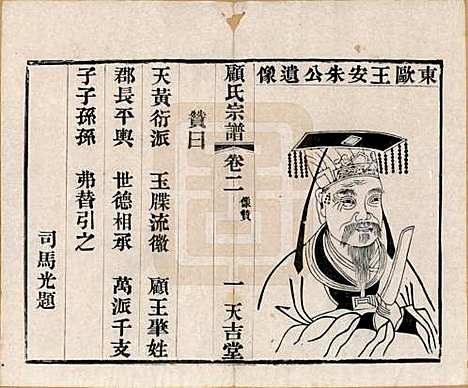 東歐王安朱公遺像
顧氏宗譜 卷二 像贊 一 天吉堂
贊曰
天黃衍派 玉牒流徽 顧王肇姓
郡長平輿 世德相承 萬派千支
子子孫孫 弗替引之
司馬光題